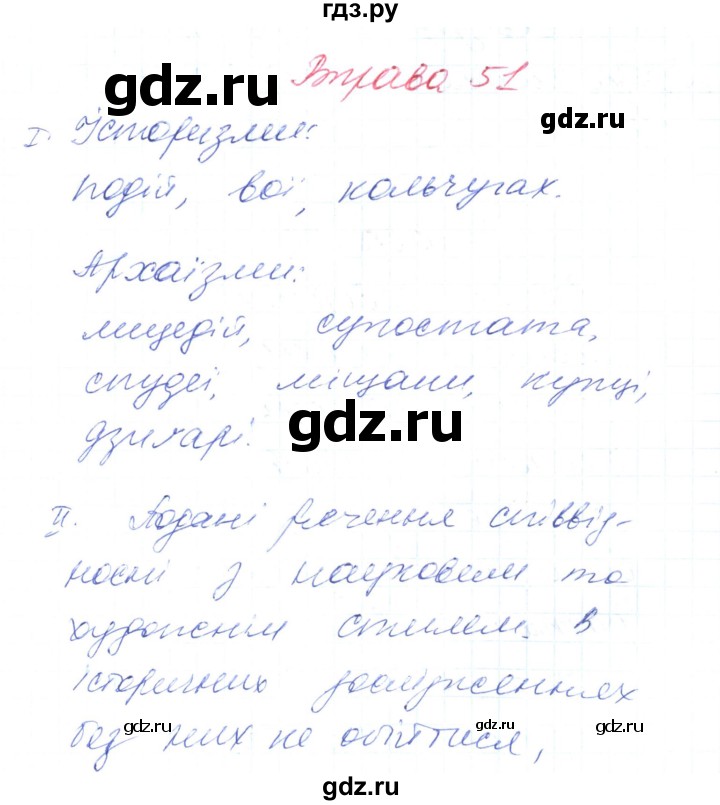 гдз.ру
gdz.ru gdz.ru
Вправа 51
I. Історизми:
подій, вої, кольчугах.
Архаїзми:
лицедій, супостата,
спудеї, міщани, купці,
gdz.ru
дзигарі.
II. Подані речення співвід-
носні з науковим та
художнім стилем. В
історичних дослідженнях
без них не обійтися,
gdz.ru gdz.ru gdz.ru
gdz.ru